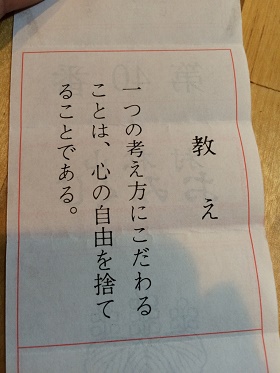 教え
一つの考え方にこだわる
ことは、心の自由を捨て
ることである。